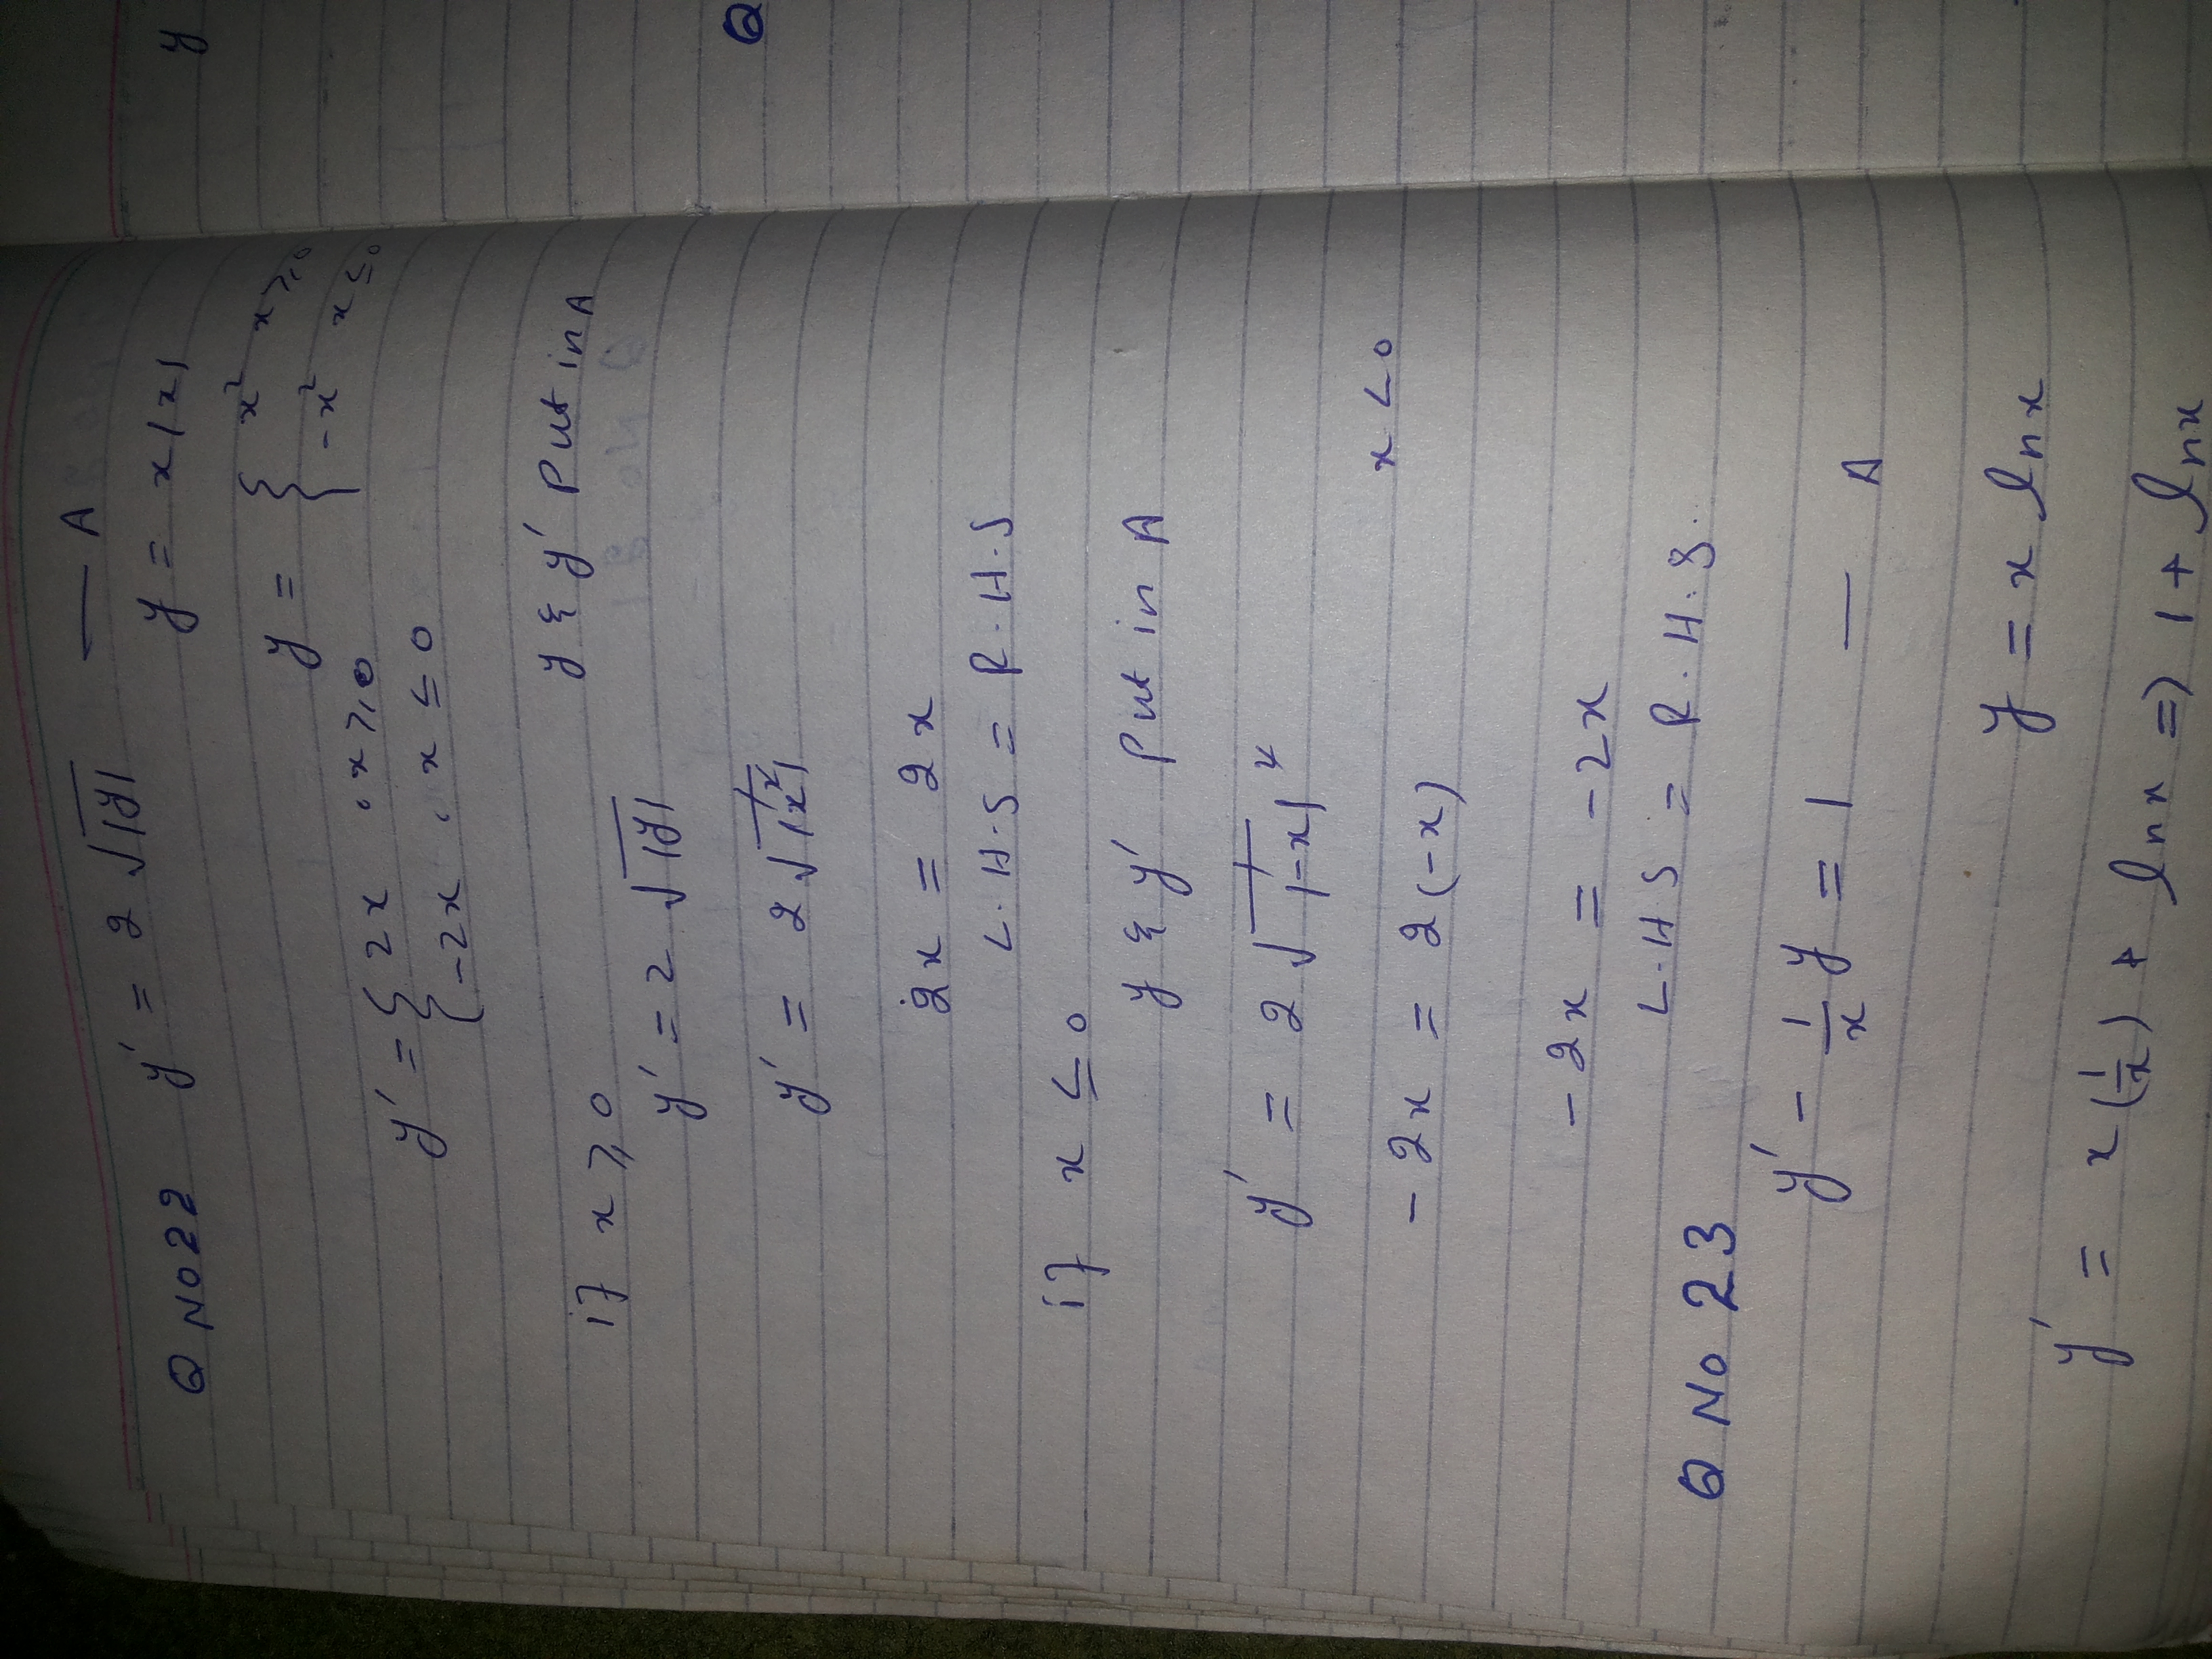 Q No 22 y' = 2 √|y| — A
y = x|x|
y = { x² x ≥ 0
-x² x ≤ 0
y' = { 2x , x ≥ 0
-2x , x ≤ 0
y & y' Put in A
if x ≥ 0
y' = 2 √|y|
y' = 2 √|x²|
2x = 2x
L.H.S = R.H.S
if x ≤ 0
y & y' Put in A
y' = 2 √|-x|²
x < 0
-2x = 2(-x)
-2x = -2x
L.H.S = R.H.S.
Q No 23
y' - 1/x y = 1 — A
y = x ln x
y' = x(1/x) + ln x => 1 + ln x
y
Q